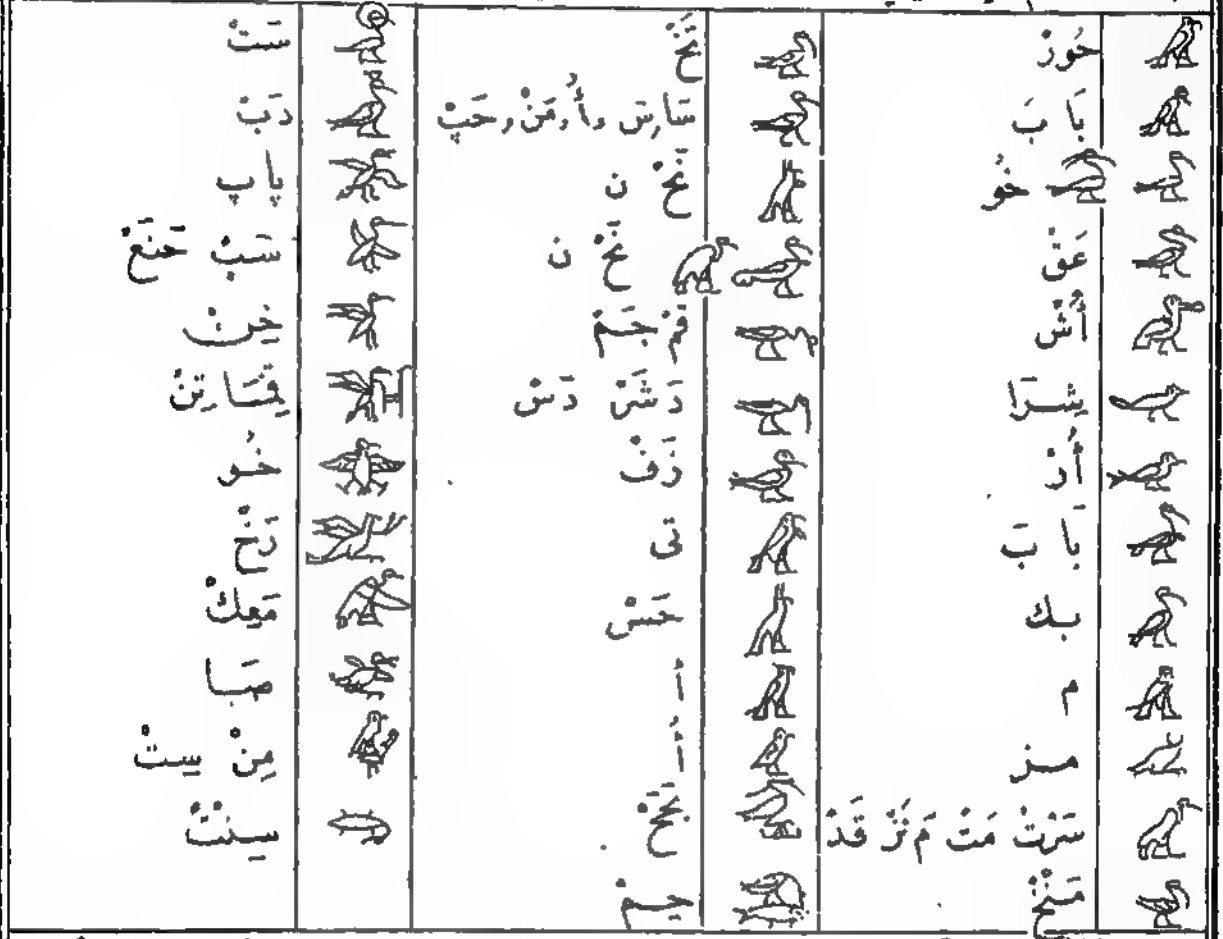 حُورْ
بَا بَ
خُو
عَقْ
أُشْ
يشرَا
أُرْ
بَا بَ
بك
م
مز
سَرْتْ مَتْ مَ نَرْ قَدْ
مَنْخْ
نَخْ
نَخْ ن
نَخْ ن
قَمْ جَمْ
دَشَرْ دَسْ
زَفْ
تى
حَسْ
أَ
أُ
نَخَخْ
جِمْ
سَتْ
دَبْ
پا پ
سَبْ حَنَعْ
خِنْ
خُو
رَخْ
مَعِكْ
صَبا
مِنْ سِتْ
سِنْتْ